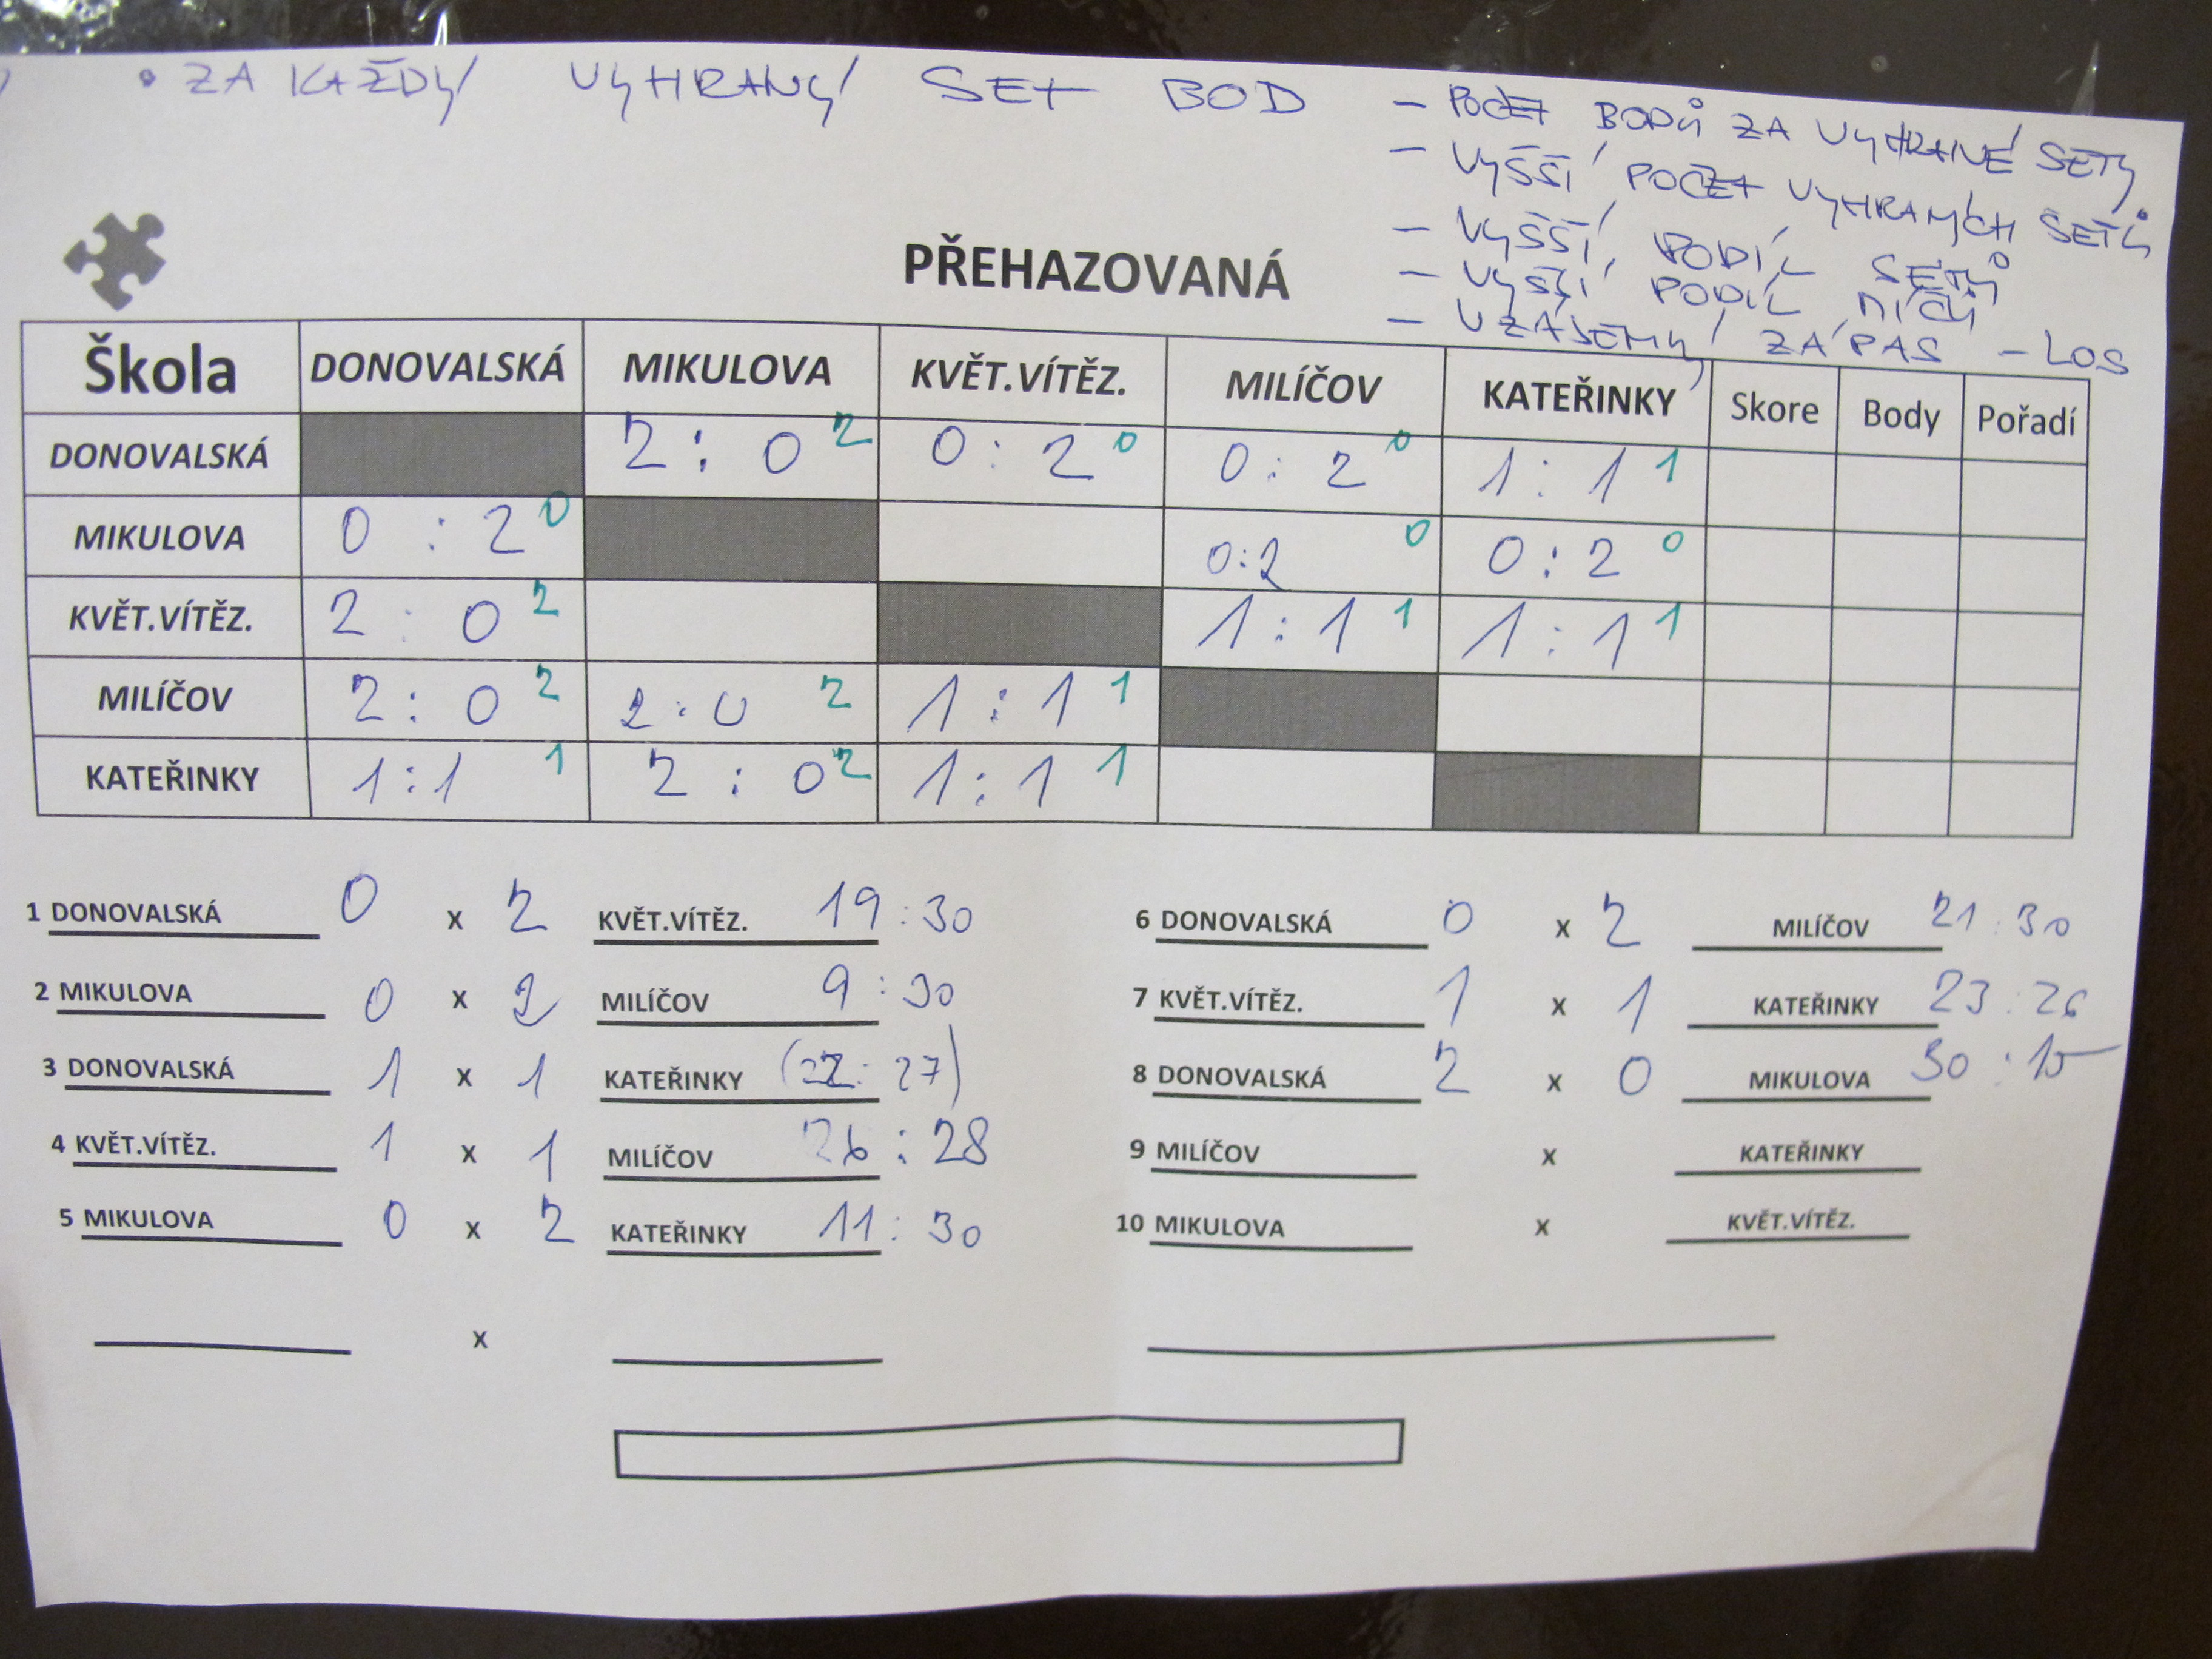 • ZA KAŽDÝ VYHRANÝ SET BOD
- POČET BODŮ ZA VYHRANÉ SETY
- VYŠŠÍ POČET VYHRANÝCH SETŮ
- VYŠŠÍ PODÍL SETŮ
- VYŠŠÍ PODÍL MÍČŮ
- VZÁJEMNÝ ZÁPAS - LOS
PŘEHAZOVANÁ
Škola DONOVALSKÁ MIKULOVA KVĚT.VÍTĚZ. MILÍČOV KATEŘINKY Skore Body Pořadí
DONOVALSKÁ 2 : 0 2 0 : 2 0 0 : 2 0 1 : 1 1
MIKULOVA 0 : 2 0 0:2 0 0 : 2 0
KVĚT.VÍTĚZ. 2 : 0 2 1 : 1 1 1 : 1 1
MILÍČOV 2 : 0 2 2 : 0 2 1 : 1 1
KATEŘINKY 1:1 1 2 : 0 2 1 : 1 1
1 DONOVALSKÁ 0 x 2 KVĚT.VÍTĚZ. 19 : 30
2 MIKULOVA 0 x 2 MILÍČOV 9 : 30
3 DONOVALSKÁ 1 x 1 KATEŘINKY (22 : 27)
4 KVĚT.VÍTĚZ. 1 x 1 MILÍČOV 26 : 28
5 MIKULOVA 0 x 2 KATEŘINKY 11 : 30
x
6 DONOVALSKÁ 0 x 2 MILÍČOV 21 : 30
7 KVĚT.VÍTĚZ. 1 x 1 KATEŘINKY 23 : 26
8 DONOVALSKÁ 2 x 0 MIKULOVA 30 : 15
9 MILÍČOV x KATEŘINKY
10 MIKULOVA x KVĚT.VÍTĚZ.